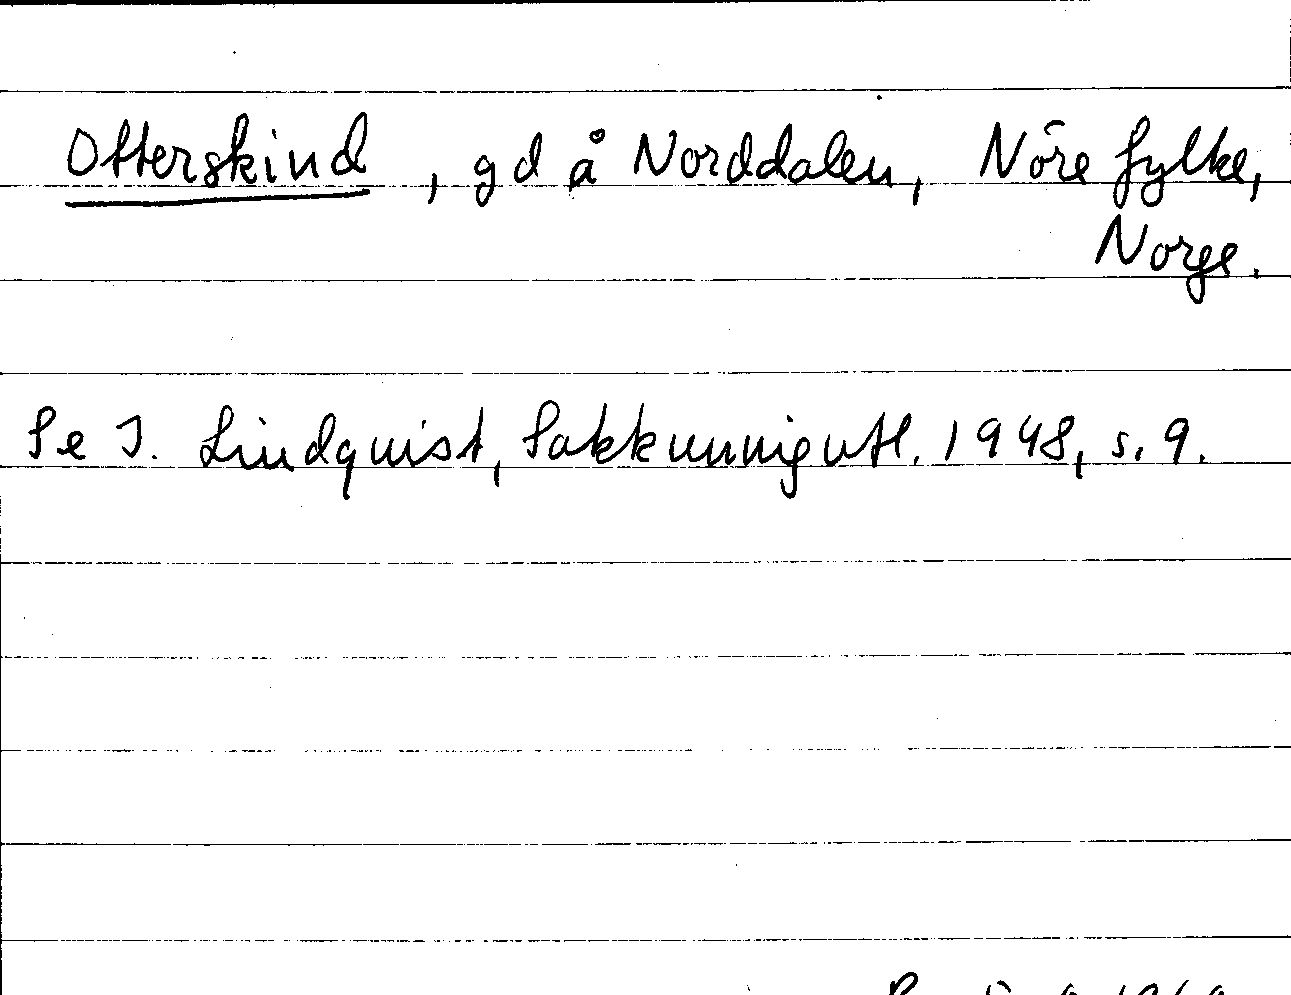 Otterskind, gd å Norddalen, Nöre fylke,
Norge.
Se I. Lindquist, Sakkunnigutl. 1948, s. 9.